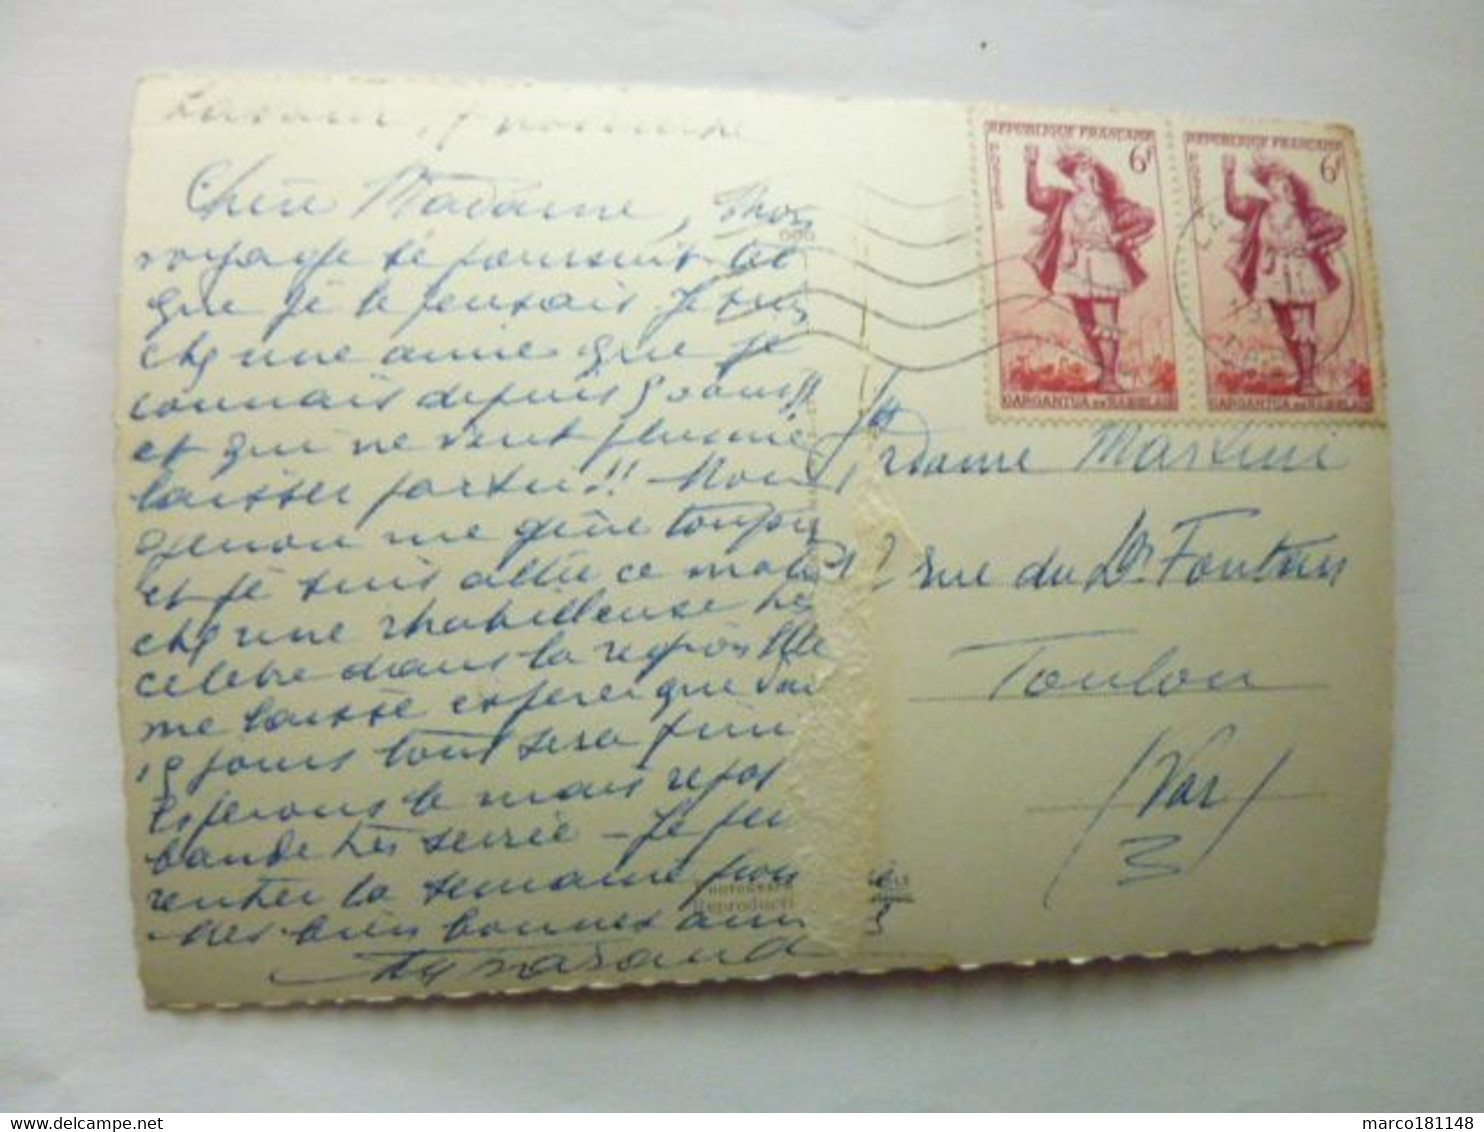 Chère Madame, Mon
voyage se poursuit tel
que je le pensais. Je suis
chez une amie que je
connais depuis 50 ans!!
et qui ne veut plus me
laisser partir!! Mon
genou me gêne toujours
et je suis allée ce matin
chez une rhabilleuse très
célèbre dans la région Elle
me laisse espérer que dans
15 jours tout sera fini
Espérons le mais repos
bande très serrée - Je pense
rentrer la semaine
Mes bien bonnes
REPUBLIQUE FRANÇAISE
6F
POSTES
GARGANTUA DE RABELAIS
REPUBLIQUE FRANÇAISE
6F
POSTES
GARGANTUA DE RABELAIS
Madame Martini
12 rue du Dr Fontan
Toulon
(Var)
3
Reproducti
marco181148